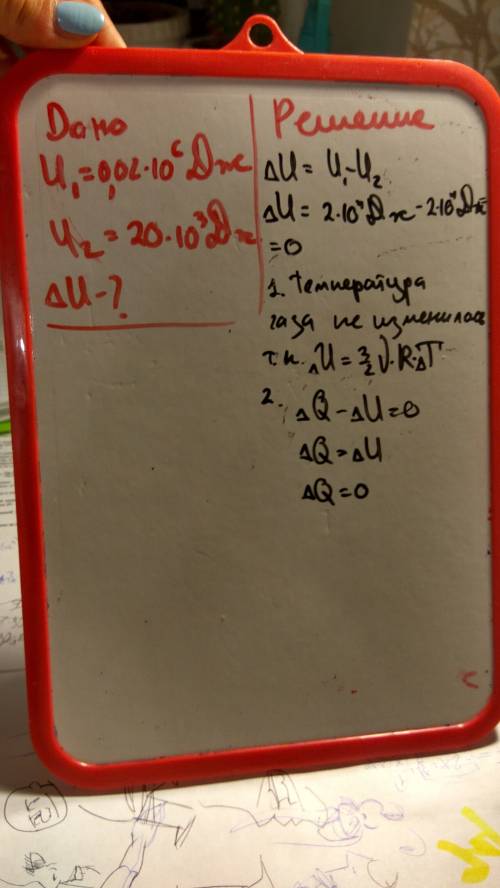 Дано
U₁=0,02·10⁶Дж
U₂=20·10³Дж
ΔU-?
Решение
ΔU= U₁-U₂
ΔU= 2·10⁴Дж-2·10⁴Дж=
=0
1. Температура
газа не изменилась
т.к. ΔU=3/2 ν·R·ΔT
2. ΔQ-ΔU=0
ΔQ=ΔU
ΔQ=0